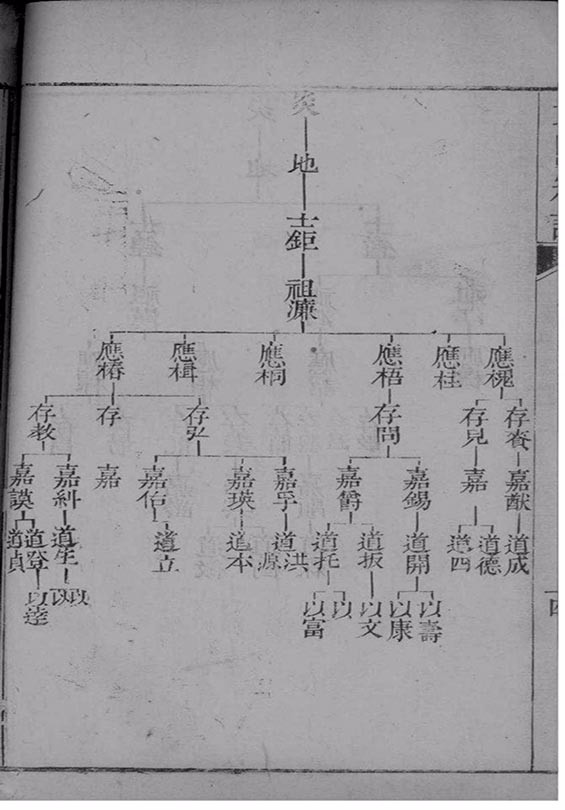 炎
地
士鉅
祖濂
應槐
應桂
應梧
應桐
應楫
應椿
存見
存問
存弘
存
存教
嘉猷
嘉
嘉錫
嘉爵
嘉孚
嘉瑛
嘉佑
嘉
嘉糾
嘉謨
道成
道德
道四
道開
道扳
道托
道洪
道源
道本
道立
道生
道登
道貞
以壽
以康
以文
以
以富
以逵